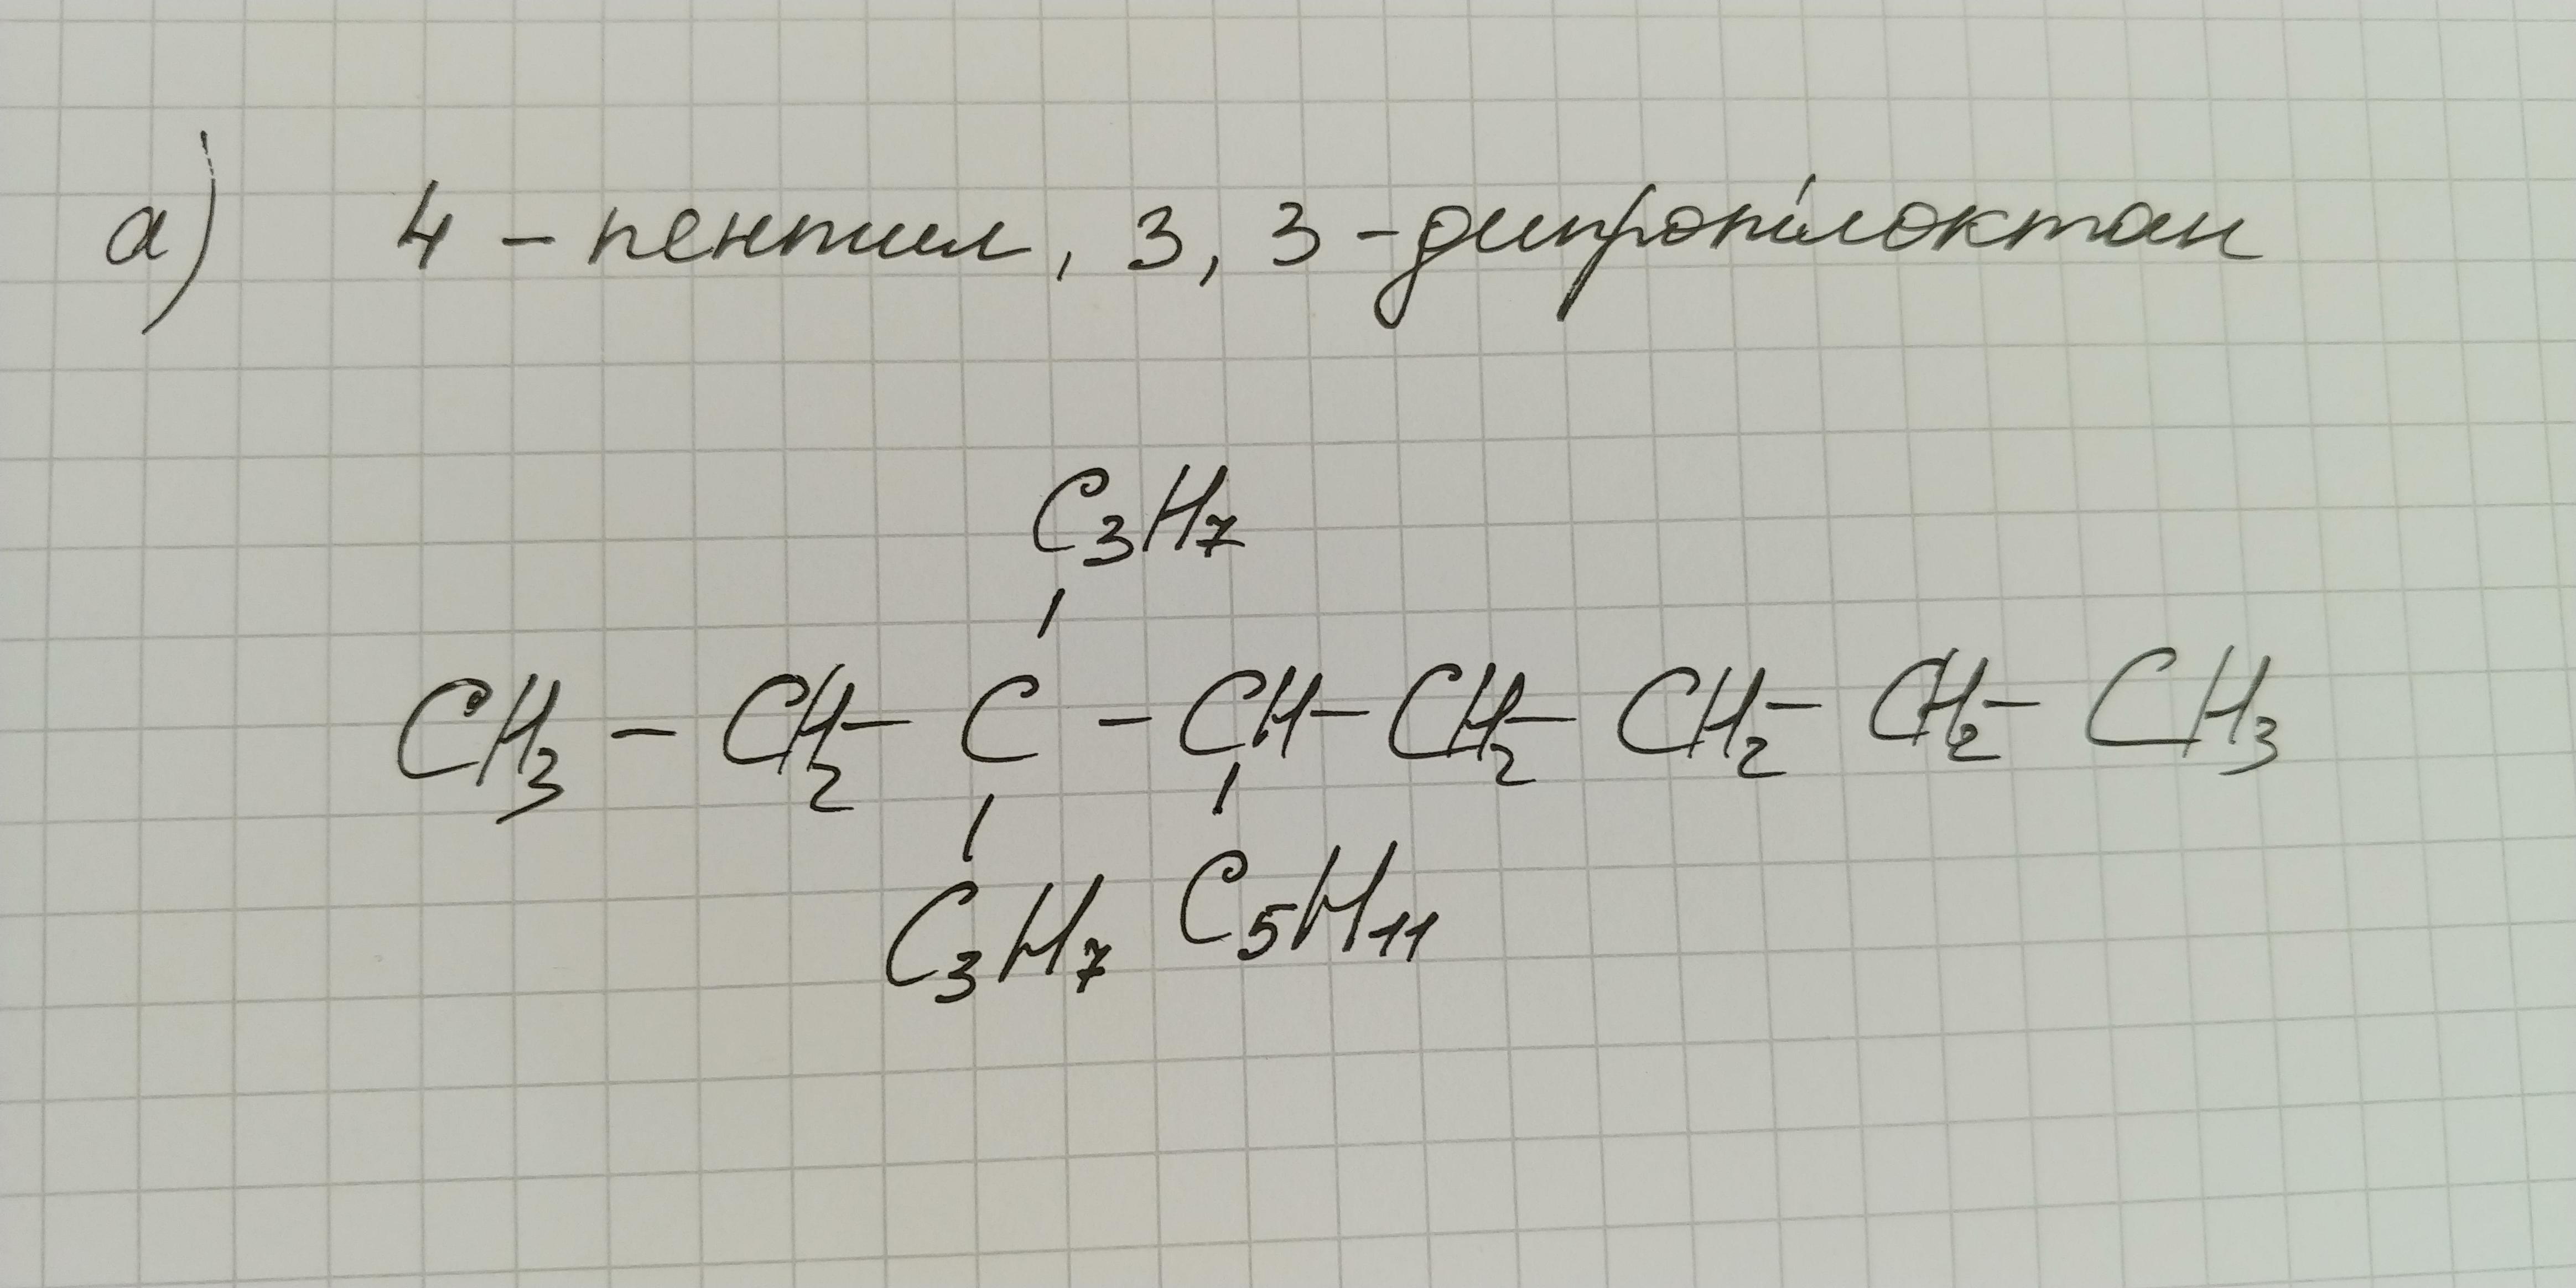 а) 4 - пентил, 3, 3 - дипропілоктан
C3H7
CH3 - CH2 - C - CH - CH2 - CH2 - CH2 - CH3
C3H7 C5H11